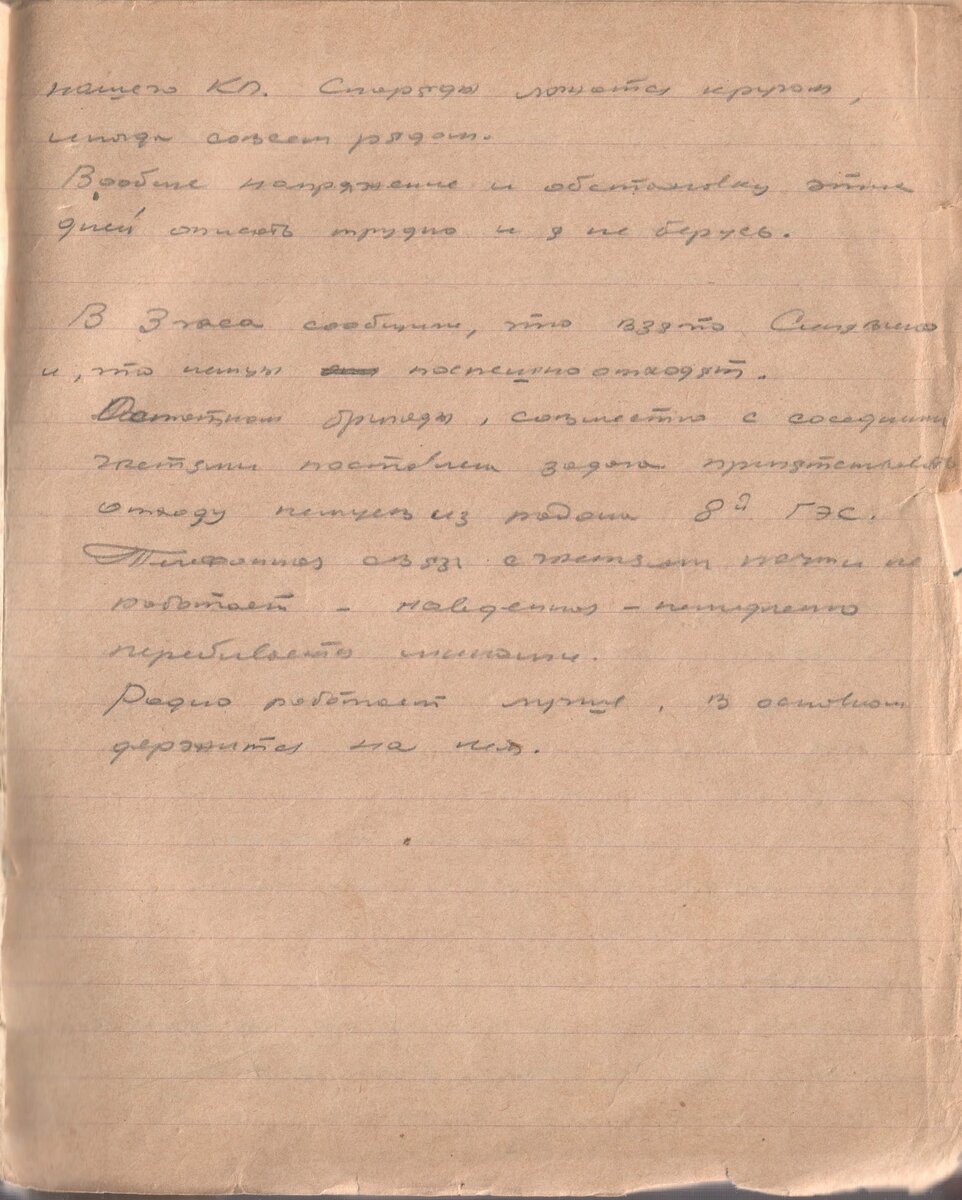 нашего КП. Снаряды ложатся кругом,
иногда совсем рядом.
Вообще напряжение и обстановку этих
дней описать трудно и я не берусь.
В 3 часа сообщили, что взято Синявино
и, что немцы поспешно отходят.
Остаткам бригады, совместно с соседними
частями поставлена задача препятствовать
отходу немцев из района 8й ГЭС.
Телефонная связь с частями почти не
работает – наведенная – немедленно
перебивается минами.
Радио работает лучше, в основном
держится на нем.